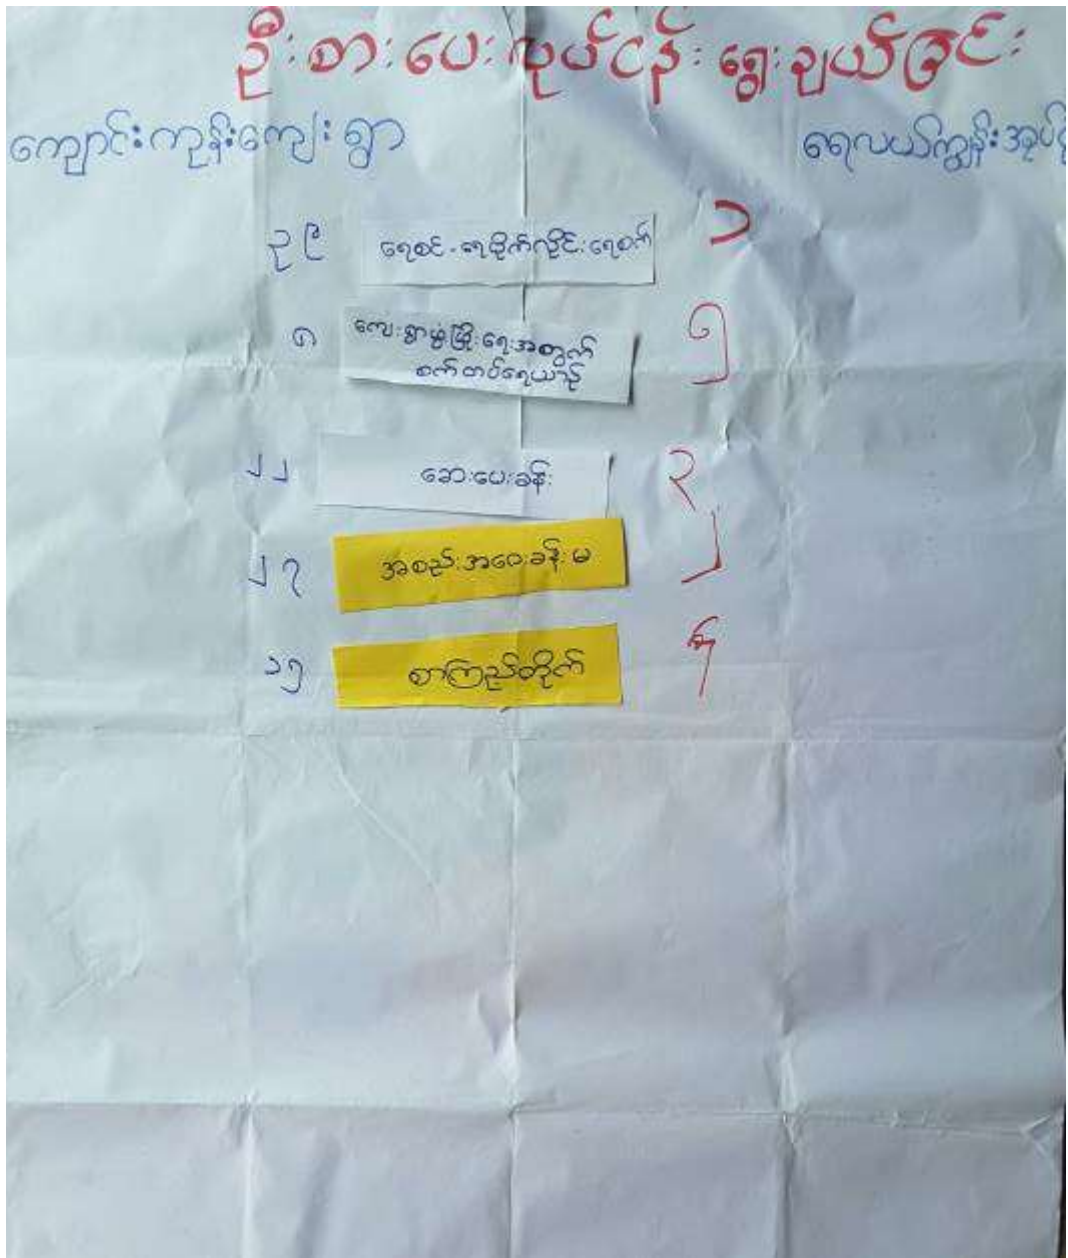 ဦးစားပေးလုပ်ငန်းရွေးချယ်ခြင်း
ကျောင်းကုန်းကျေးရွာ ရေလယ်ကျွန်းအုပ်စု
၃၉ ရေစင်-ရေပိုက်လိုင်း ရေစက် ၁
၈ ကျေးရွာဖွံ့ဖြိုးရေးအတွက်
စက်တပ်ရေယာဉ် ၅
၂၂ ဆေးပေးခန်း ၃
၂၇ အစည်းအဝေးခန်းမ ၂
၁၅ စာကြည့်တိုက် ၄